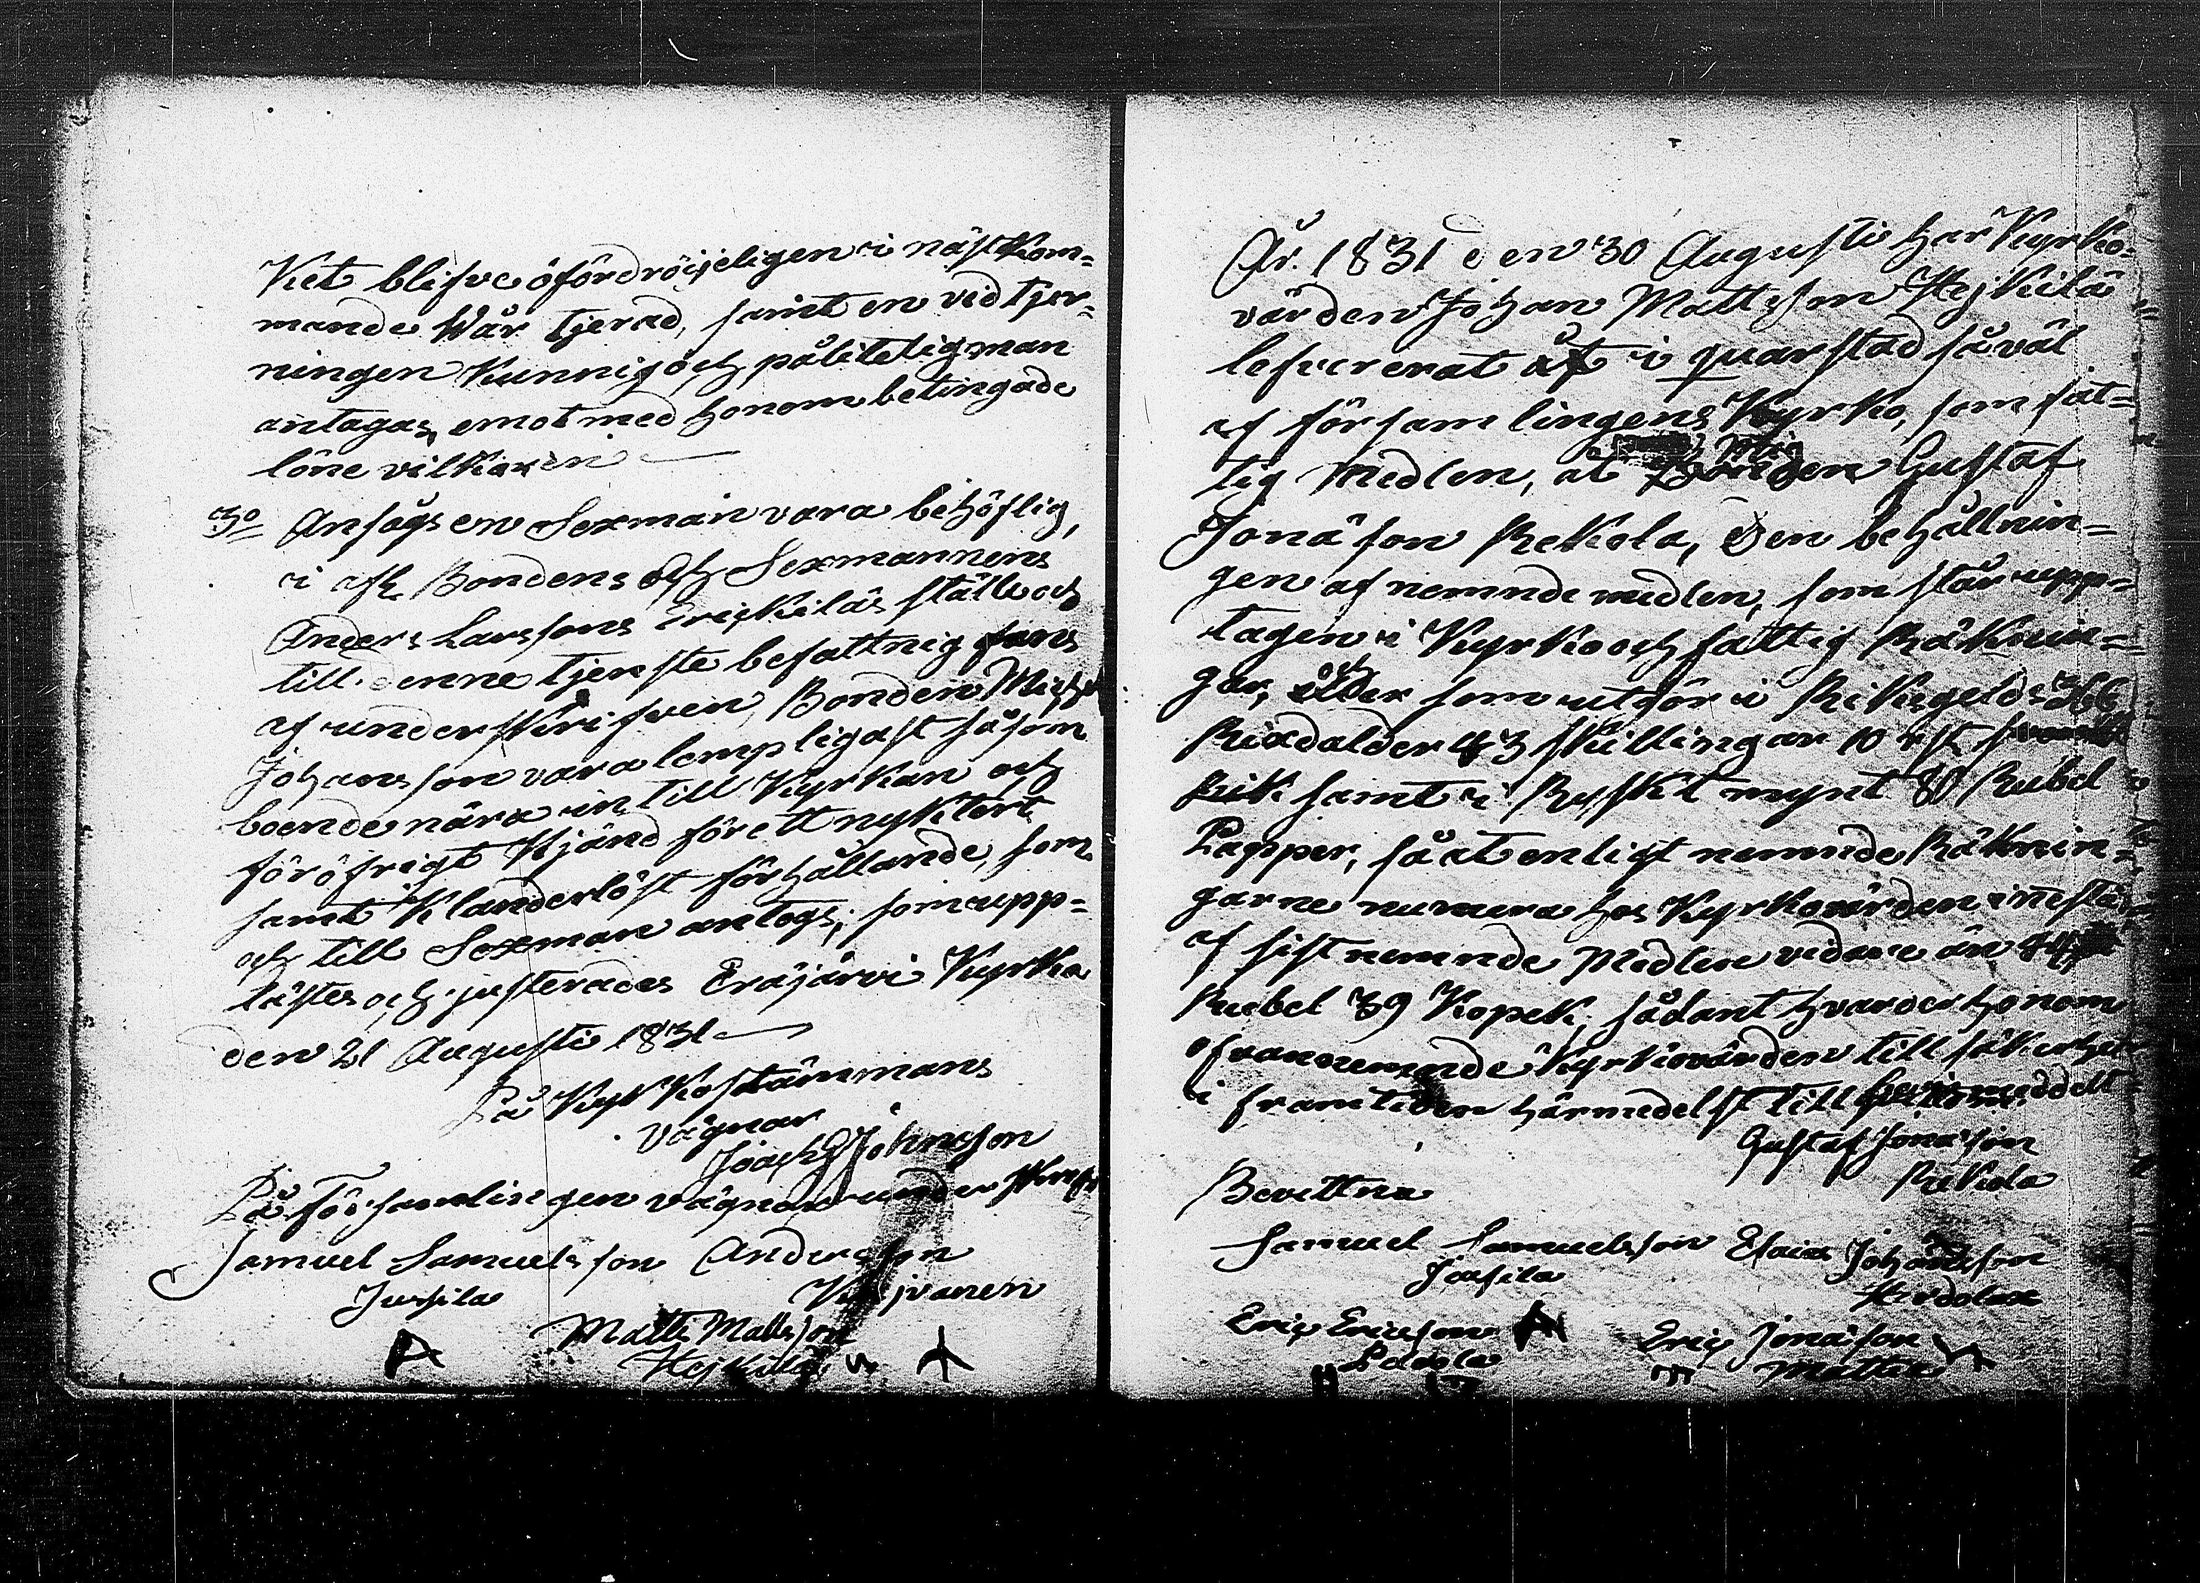 Ket blifve ofördröijeligen i nästkom=
mande Wår tjerad, samt en vid tjer=
ningen kunnig och pålitelig man
antagas, emot med honom betingade
löne vilkoren
3o Ansågs en Sexman vara behöflig,
i afl. Bondens och Sexmannens
Anders Larssons Erickiläs ställe och
till denne tjenste befattnig fans
af underskrifven, Bonden Michel
Johansson vara lempligast såsom
boende nära intill Kyrkan och
föröfrigt kjänd för ett nyktert
samt klanderlöst förhållande, som
och till Sexman antogs; som upp=
lästes och justerades Eräjärvi Kyrka
den 21 Augusti 1831
På Kyrkostämmans
vägnar
Johnsson
På Församlingen vägnar
Samuel Samuelsson Andersson
Jusila
Matts Mattsson
Hejkilä
År. 1831 den 30 Augusti har Kyrko=
värden Johan Mattsson Hejkilä
lefvererat åt i quarstad så väl
af församlingens Kyrko, som fat=
tig Medlen, åt Gustaf
Jonäson Rekola, den behållnin=
gen af nemnde medlen, som står upp=
tagen i Kyrko och fattig Räknin=
gar, som utgör i Riksgelds 366
Rixdalder 43 skillingar 10 rst
samt i Ryskt mynt 80 Rubel
Papper, så at enligt nemnde Räknin=
garne numera hos Kyrkovärden innestår
af sistnemnde Medlen vidare än
Rubel 39 Kopek, sådant hvarder honom
ofvannemnde Kyrkovärden till säkerhet
i framtiden härmedelst till bevis meddelt
Gustaf Jonasson
Rekola
Bevittna
Samuel Samuelsson Esaias Johansson
Jusila
Eric Ericsson Eric Jonasson
Mattas